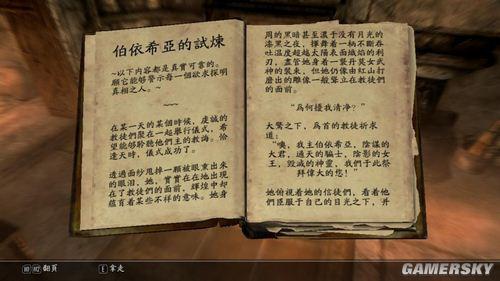 伯依希亞的試煉
~以下內容都是真實可靠的。
願它能够警示每一個欲求探明
真相之人。~
~~~
在某一天的某個時候，虔誠的
教徒們聚在一起舉行儀式，希
望能够聆聽他們主的教誨。恰
逢天時，儀式成功了。
透過面紗甩掉一顆被眼熏出來
的眼泪，她，實實在在地出現
在了教徒們的面前，輝煌中却
藴育着某些不祥的意味。她身
周的黑暗甚至濃于没有月光的
漆黑之夜，揮舞着一柄不斷吞
吐温度超越太陽表面熾焰的利
刃，盡管她身着一襲丹莫女武
神的裝束，但她仍像由紅山打
磨出的雕像一般聳立在教徒們
的面前。
“爲何擾我清净？”
大驚之下，爲首的教徒祈求
道：
“噢，我主伯依希亞，陰謀的
大君，通天的騙士，陰影的女
王，毁滅的神靈，我們于此祭
拜偉大的您！”
她俯視着她的信教們，看着他
們臣服于自己的目光之下，并
翻頁
E 拿走
GAMERSKY